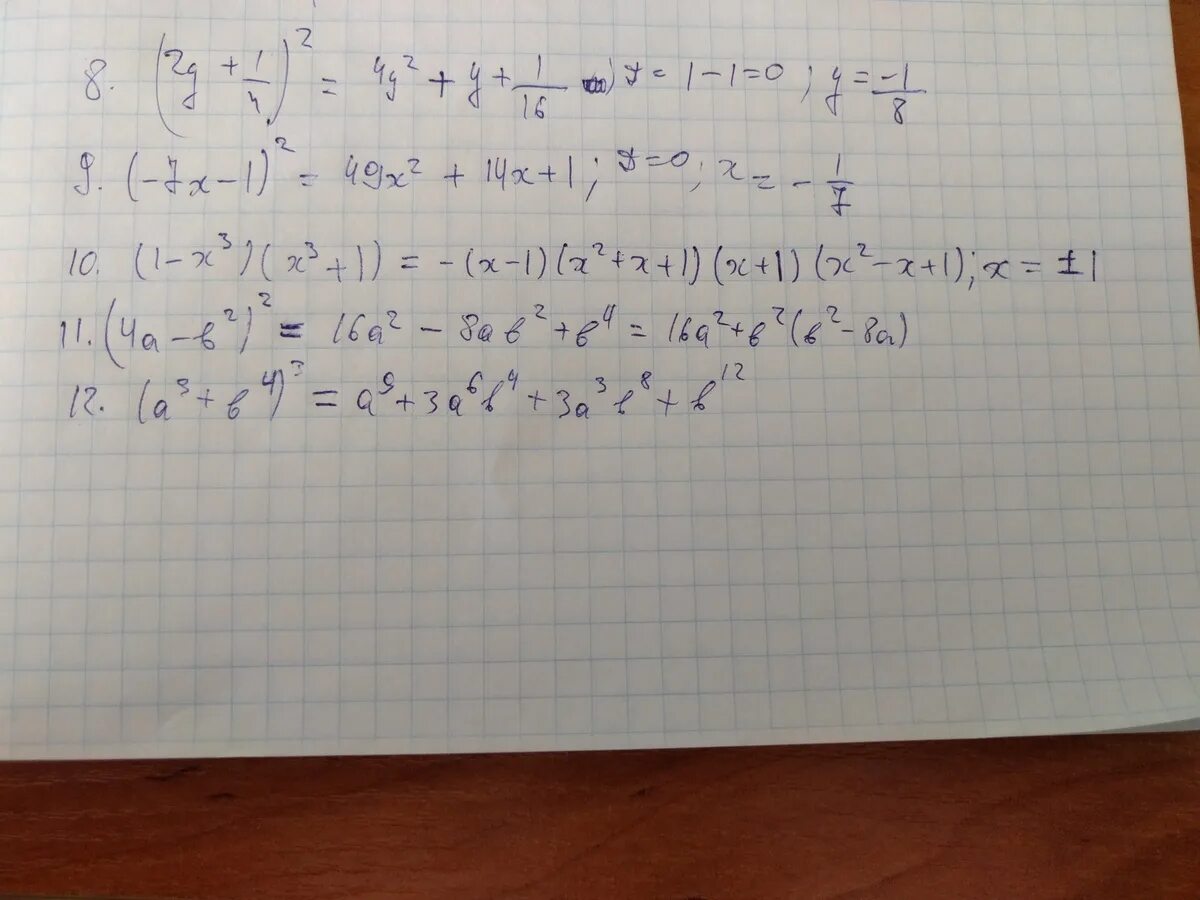 8. (2y + 1/4)² = 4y² + y + 1/16 ; D = 1 - 1 = 0 ; y = -1/8
9. (-7x - 1)² = 49x² + 14x + 1 ; D = 0 ; x = - 1/7
10. (1 - x³)(x³ + 1) = -(x - 1)(x² + x + 1)(x + 1)(x² - x + 1); x = ±1
11. (4a - b²)² = 16a² - 8ab² + b⁴ = 16a² + b²(b² - 8a)
12. (a³ + b⁴)³ = a⁹ + 3a⁶b⁴ + 3a³b⁸ + b¹²